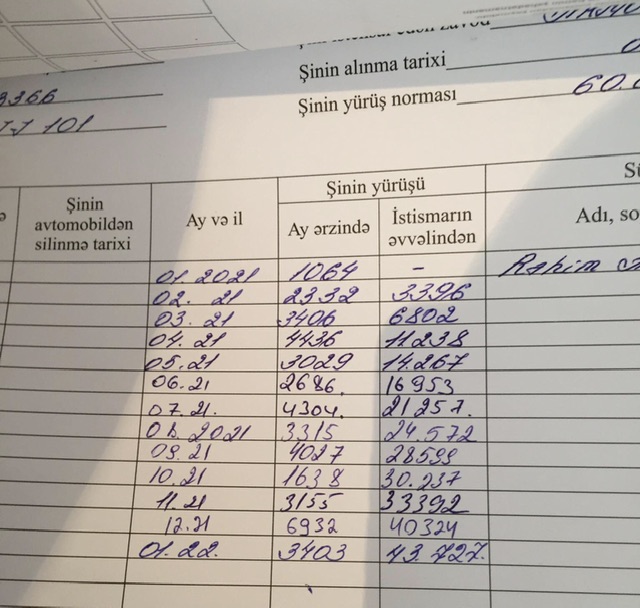 Şinin alınma tarixi
3366
Şinin yürüş norması 60.
101
Şinin yürüşü
Şinin avtomobildən silinmə tarixi
Ay və il
Ay ərzində
İstismarın əvvəlindən
Adı, so
01. 2021 1064 - Rahim
02. 21 2332 3396
03. 21 3406 6802
04. 21 4436 11238
05. 21 3029 14.267
06. 21 2686. 16953
07. 21. 4304. 21257.
08. 2021 3315 24.572
09. 21 4027 28599
10. 21 1638 30.237
11. 21 3155 33392
12. 21 6932 40324
01. 22. 3403 43.727.